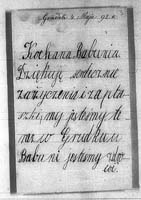 4. Maja 98. r.
Kochana Babunia.
Dziękuję serdecznie
za życzenia i za pta
szki, my jesteśmy te
raz w Gródku
Babuni jesteśmy zdro
wi.